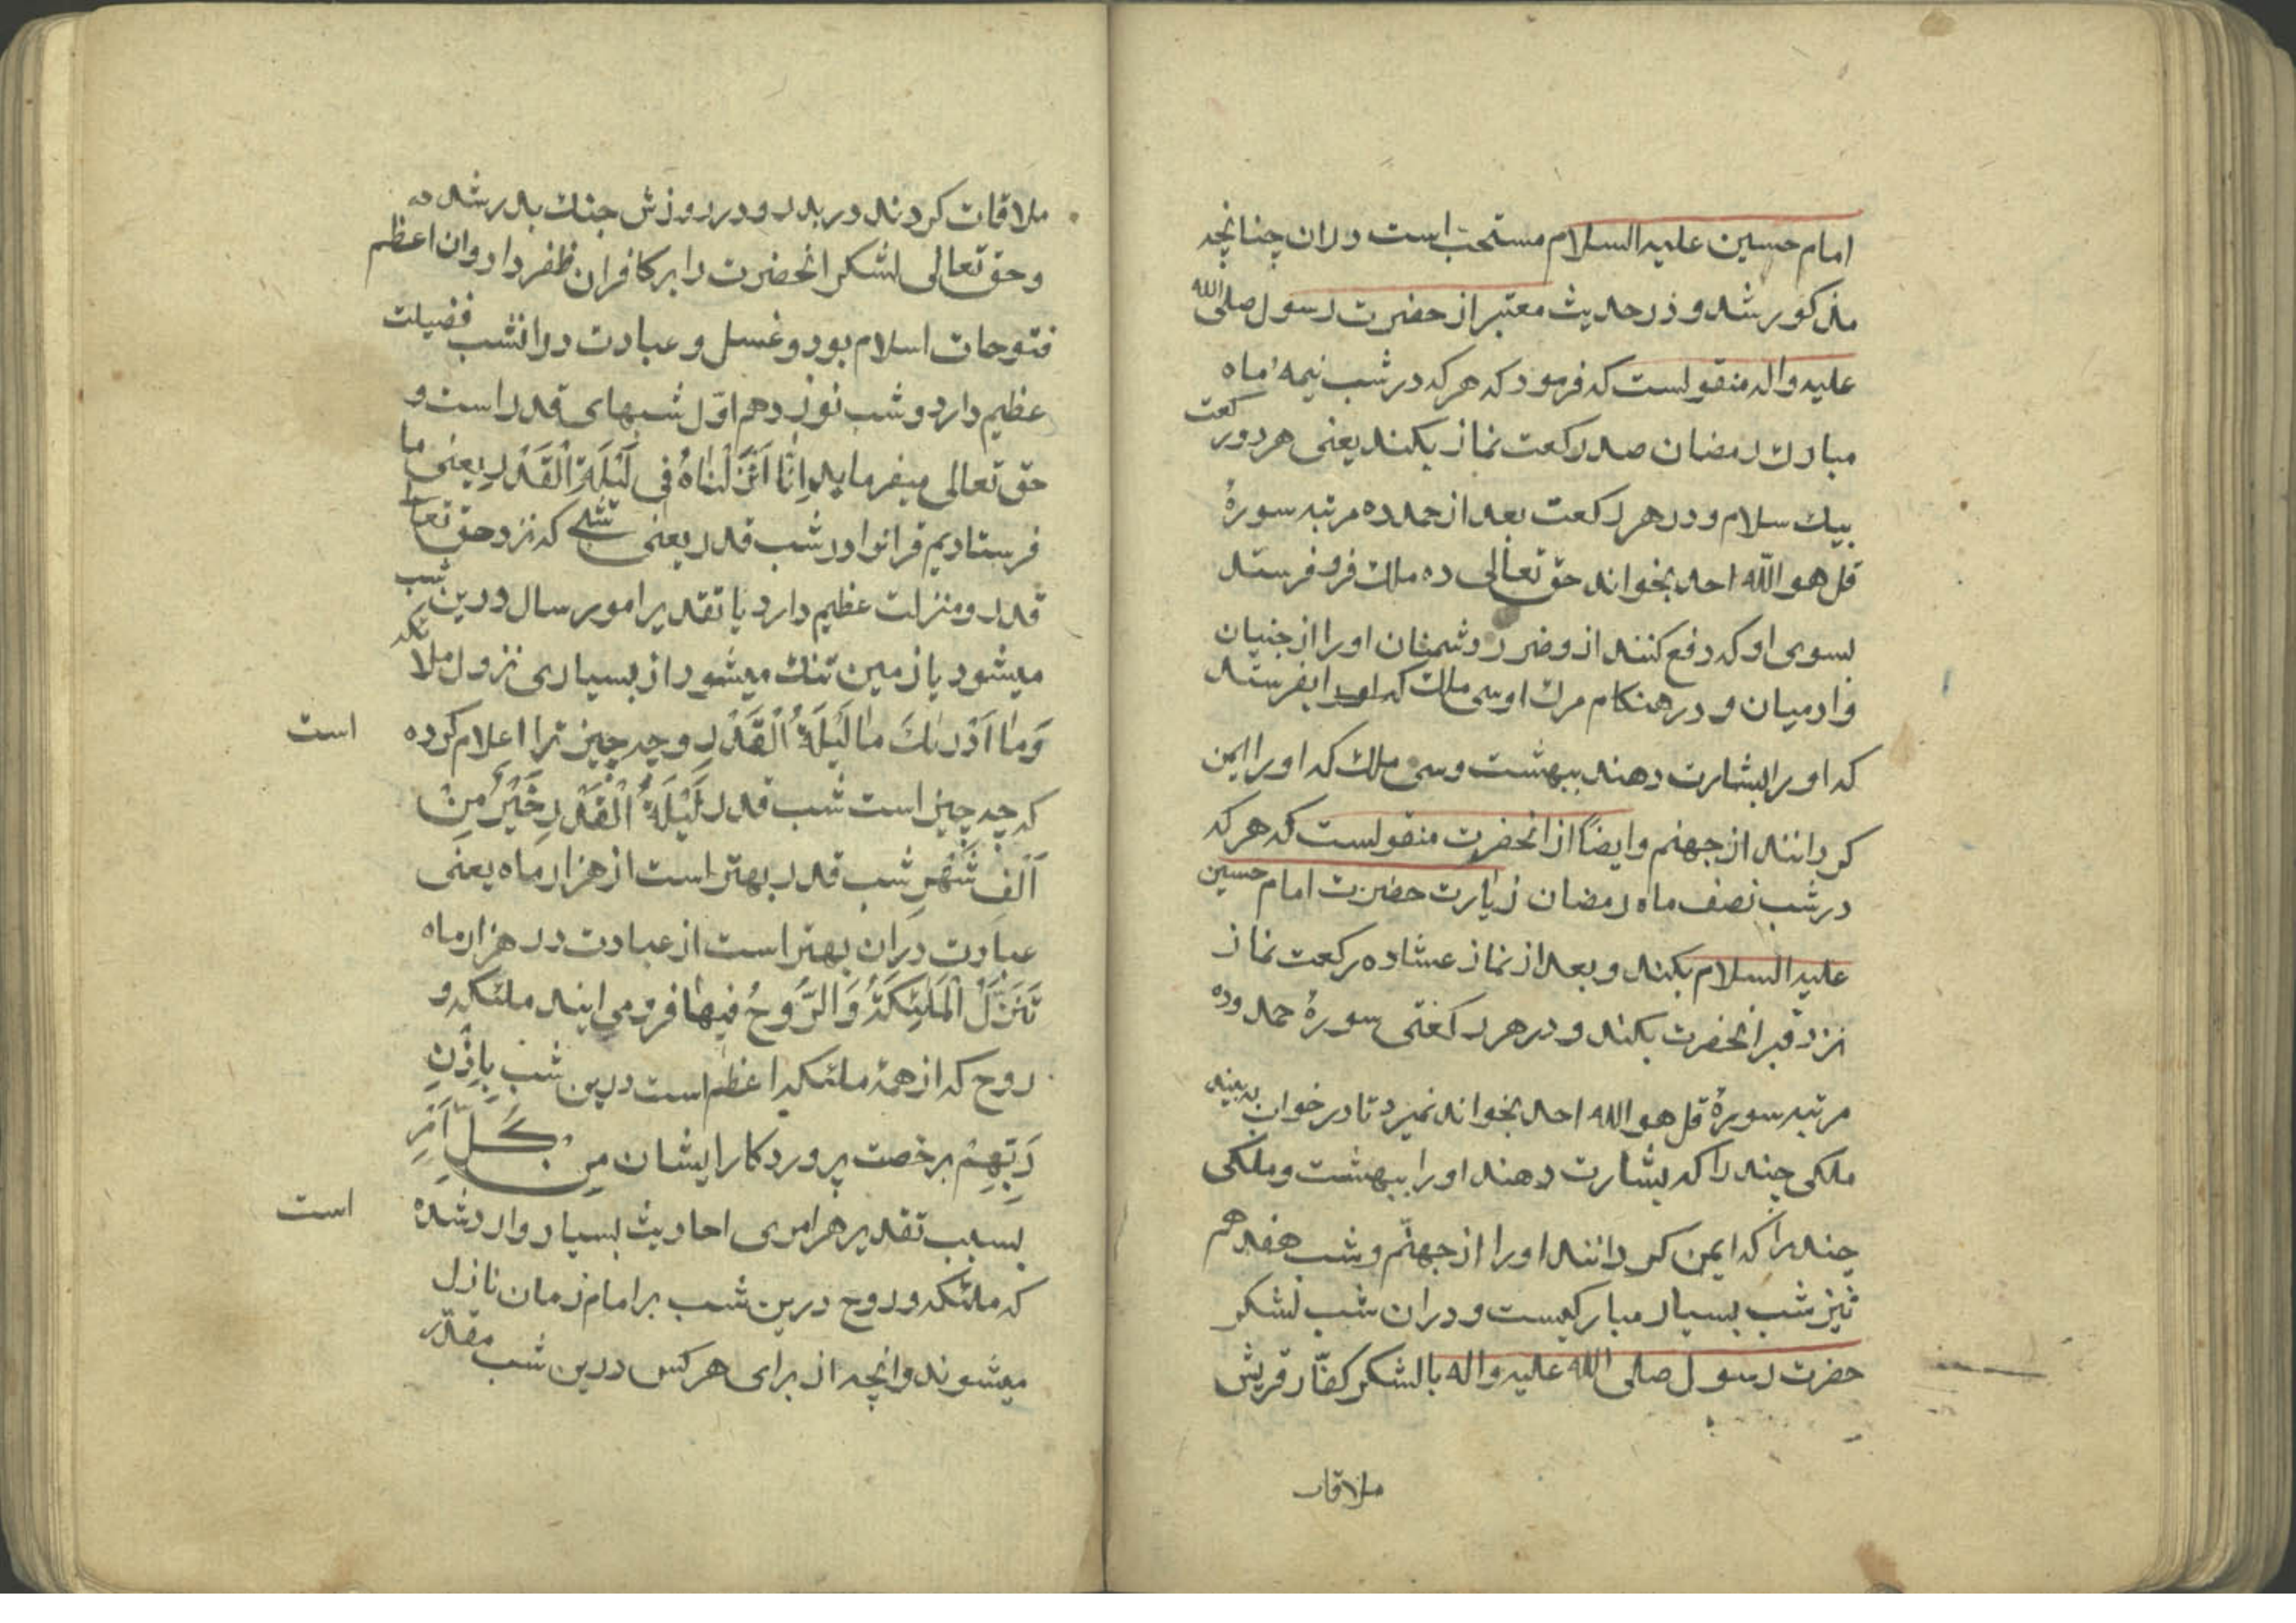 امام حسین علیه السلام مستحب است دران چنانچه
مذکور شد و در حدیث معتبر از حضرت رسول صلی الله
علیه واله منقولست که فرمود که هر که در شب نیمهٔ ماه
مبارک رمضان صد رکعت نماز بکند یعنی هر دو رکعت
بیک سلام و در هر رکعت بعد از حمد ده مرتبه سورهٔ
قل هو الله احد بخواند حق تعالی ده ملک فرو فرستد
بسوی او که دفع کنند ازو ضرر دشمنان او را از جنیان
وادمیان و در هنکام مرک او سی ملک که بفرستد
که او را بشارت دهند ببهشت و سی ملک که او را ایمن
کردانند از جهنم وایضًا از انحضرت منقولست که هر که
در شب نصف ماه رمضان زیارت حضرت امام حسین
علیه السلام بکند و بعد از نماز عشا ده رکعت نماز
نزد قبر انحضرت بکند و در هر رکعتی سورهٔ حمد و ده
مرتبه سورهٔ قل هو الله احد بخواند نمیرد تا در خواب به بیند
ملکی چند را که بشارت دهند او را ببهشت و ملکی
چند را که ایمن کردانند او را از جهنّم و شب هفدهم
نیز شب بسیار مبارکیست و دران شب لشکر
حضرت رسول صلی الله علیه واله بالشکر کفّار قریش
ملاقات
ملاقات کردند در بدر و در روزش جنک بدر شد
و حق تعالی لشکر انحضرت را بر کافران ظفر داد وان اعظم
فتوحات اسلام بود و غسل و عبادت درانشب فضیلت
عظیم دارد و شب نوزدهم اوّل شبهای قدر است و
حق تعالی میفرماید اِنّٰا اَنْزَلْنٰاهُ فی لَیْلَةِ الْقَدْرِ یعنی ما
فرستادیم قرانرا در شب قدر یعنی شبی که نزد حق تعالی
قدر و منزلت عظیم دارد یا تقدیر امور سال درین شب
میشود یا زمین تنک میشود از بسیاری نزول ملائکه
وَمٰا اَدْرٰیكَ مٰا لَیْلَةُ الْقَدْرِ و چه چیز ترا اعلام کرده است
که چه چیز است شب قدر لَیْلَةُ الْقَدْرِ خَیْرٌ مِنْ
اَلْفِ شَهْرٍ شب قدر بهتر است از هزار ماه یعنی
عبادت دران بهتر است از عبادت در هزار ماه
تَنَزَّلُ الْمَلٰئِکَةُ وَالرُّوحُ فیهٰا فرو می ایند ملئکه و
روح که از همهٔ ملئکه اعظم است درین شب بِاِذْنِ
رَبِّهِمْ برخصت پروردکار ایشان مِنْ کُلِّ اَمْرٍ
بسبب تقدیر هر امری احادیث بسیار وارد شده است
که ملئکه و روح درین شب بر امام زمان نازل
میشوند وانچه از برای هر کس درین شب مقدّر